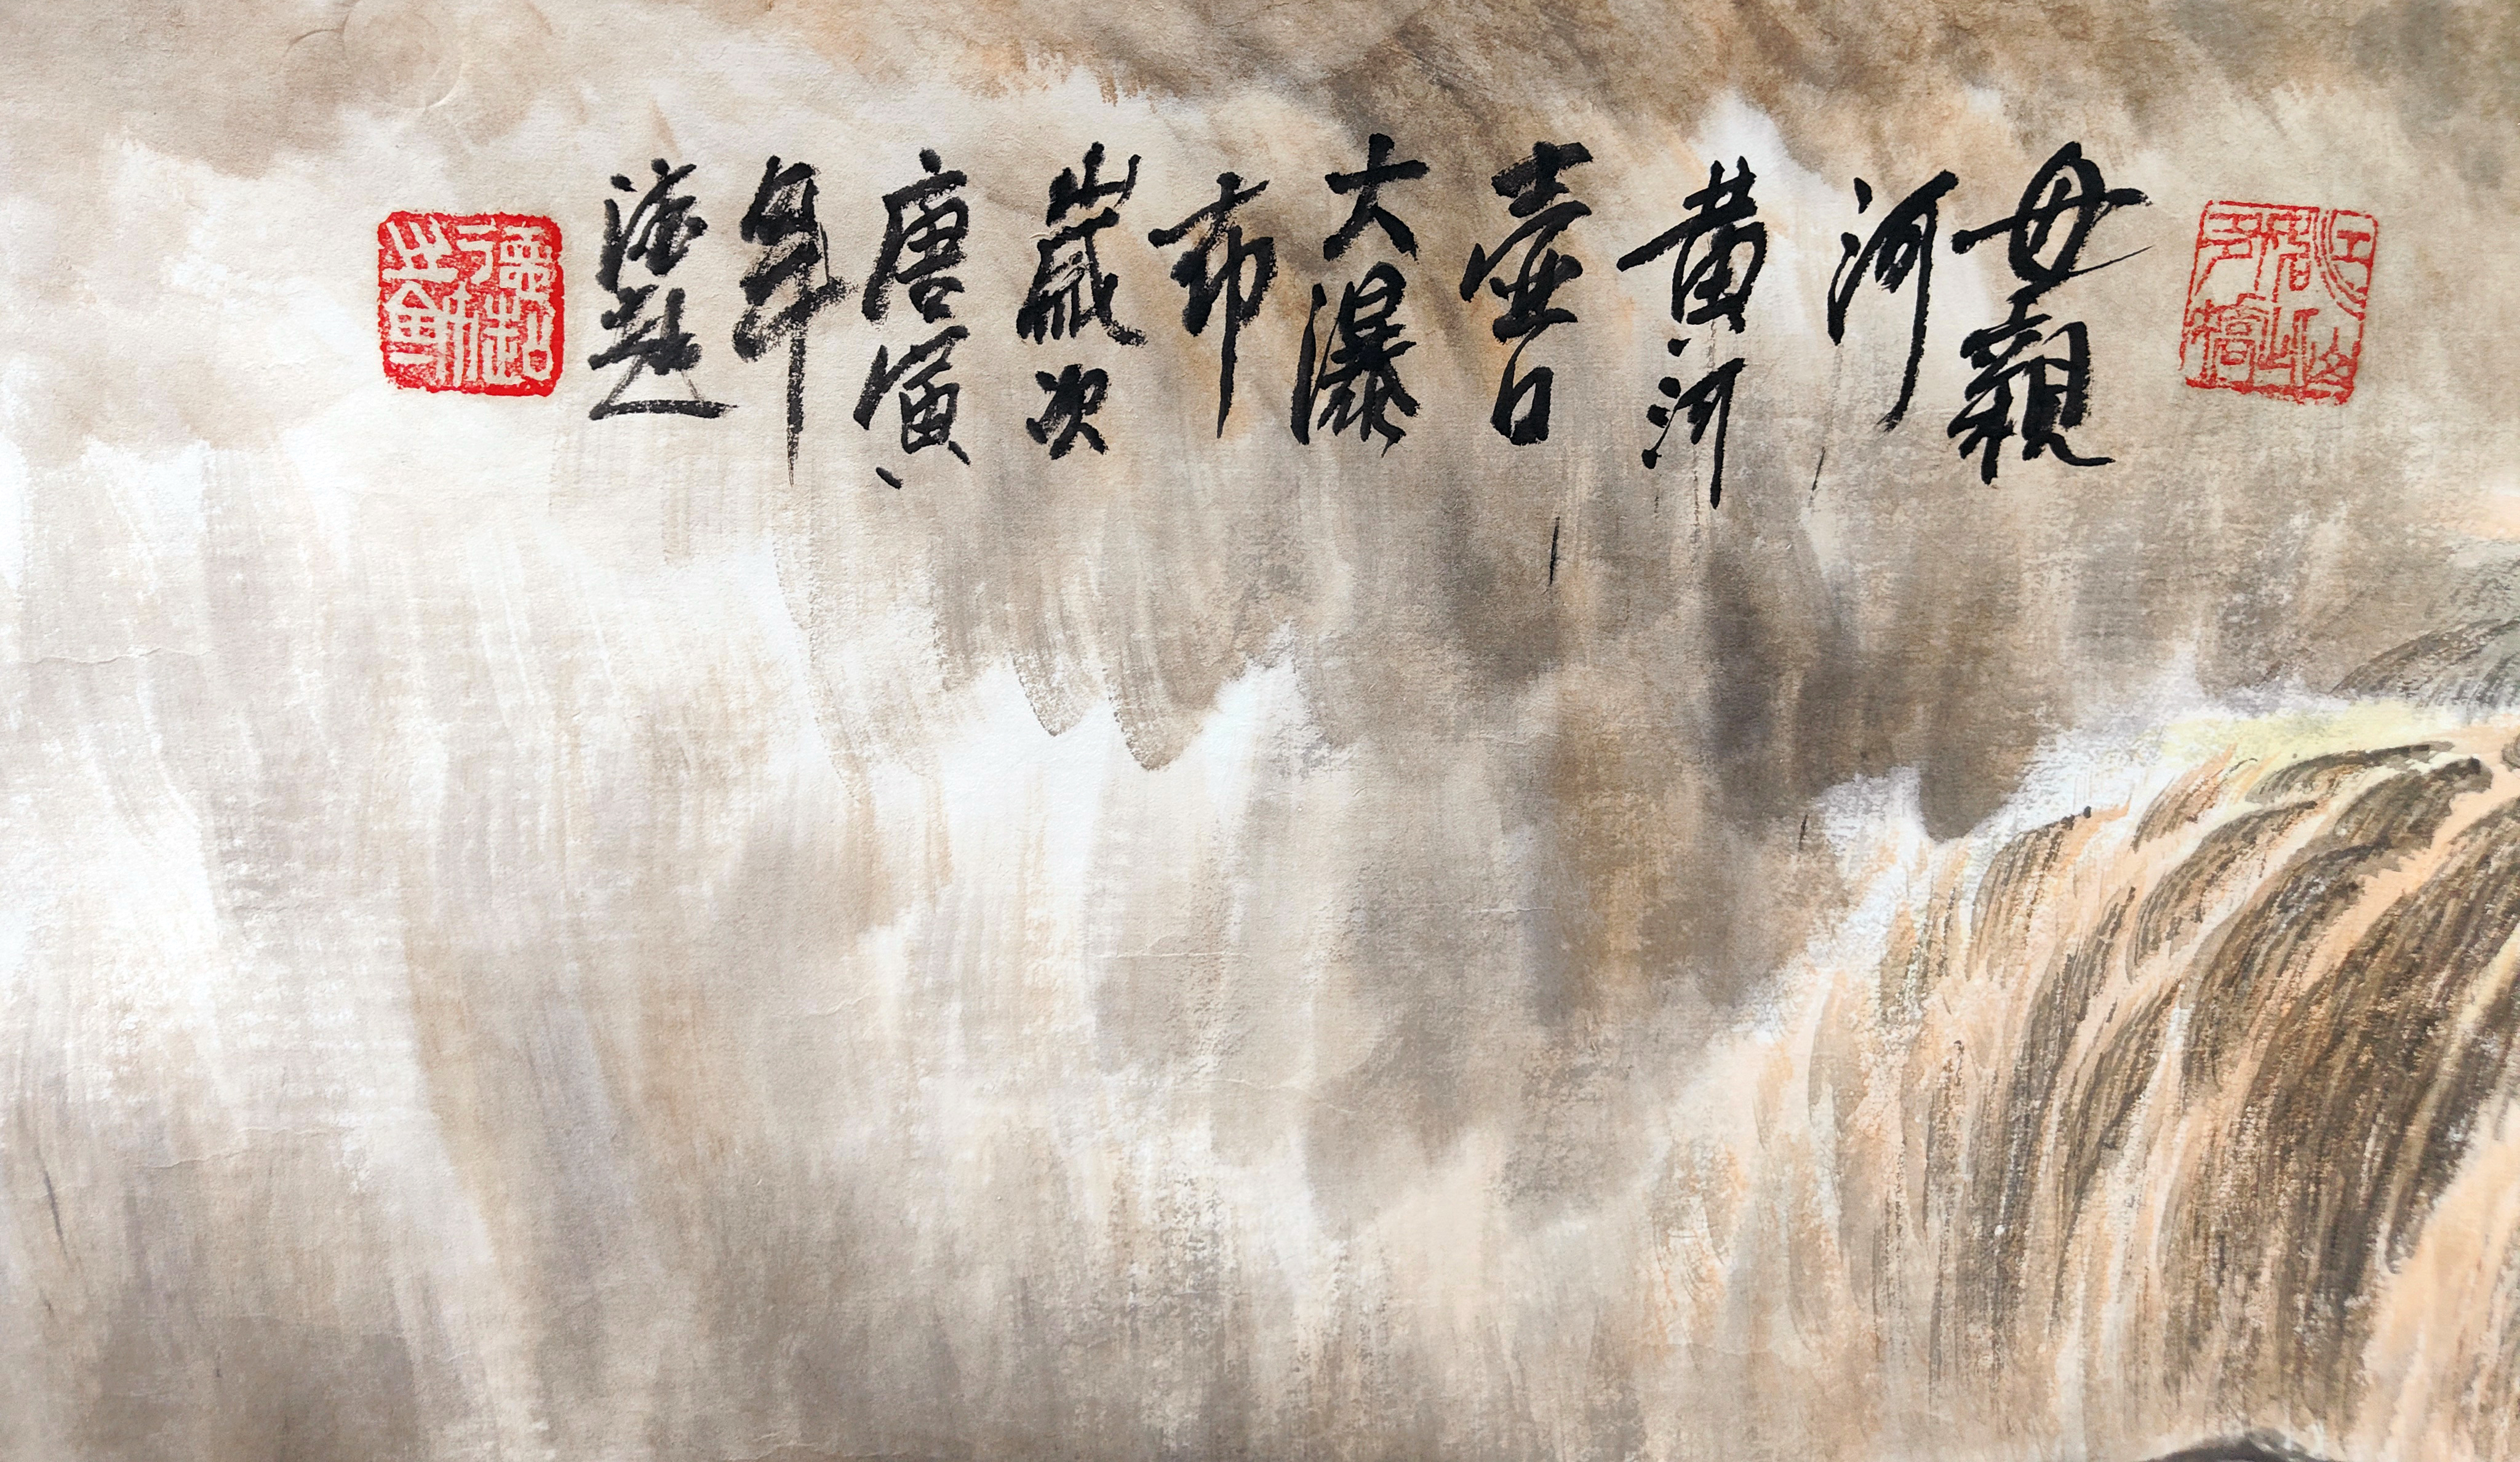 母親
河
黄河
壶口
大瀑
布
歲次
庚寅
年